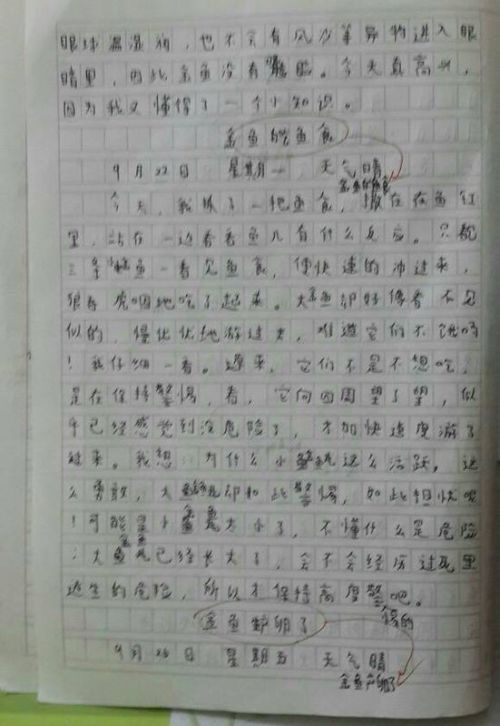 眼球温湿润，也不会有风沙等异物进入眼
睛里，因此金鱼没有眼睑。今天真高兴，
因为我又懂得了一个小知识。
金鱼的鱼食
9月22日 星期一 天气晴
金鱼的鱼食
今天，我抓了一把鱼食，撒在在鱼缸
里，站在一边看看鱼儿有什么反应。只见
三条小鱼一看见鱼食，便快速的冲过来，
狼吞虎咽地吃了起来。大金鱼却好像看不见
似的，慢优优地游过来，难道它们不饿吗
！我仔细一看。原来，它们不是不想吃，
是在保持警惕，看，它向四周望了望，似
乎已经感觉到没危险了，才加快速度游了
过来。我想：为什么小金鱼这么活跃，这
么勇敢，大金鱼却如此警惕，如此担忧呢
！可能是小金鱼太小了，不懂什么是危险
；大金鱼已经长大了，会不会经历过死里
逃生的危险，所以才保持高度警吧。
惕的
金鱼产卵了
9月26日 星期五 天气晴
金鱼产卵了